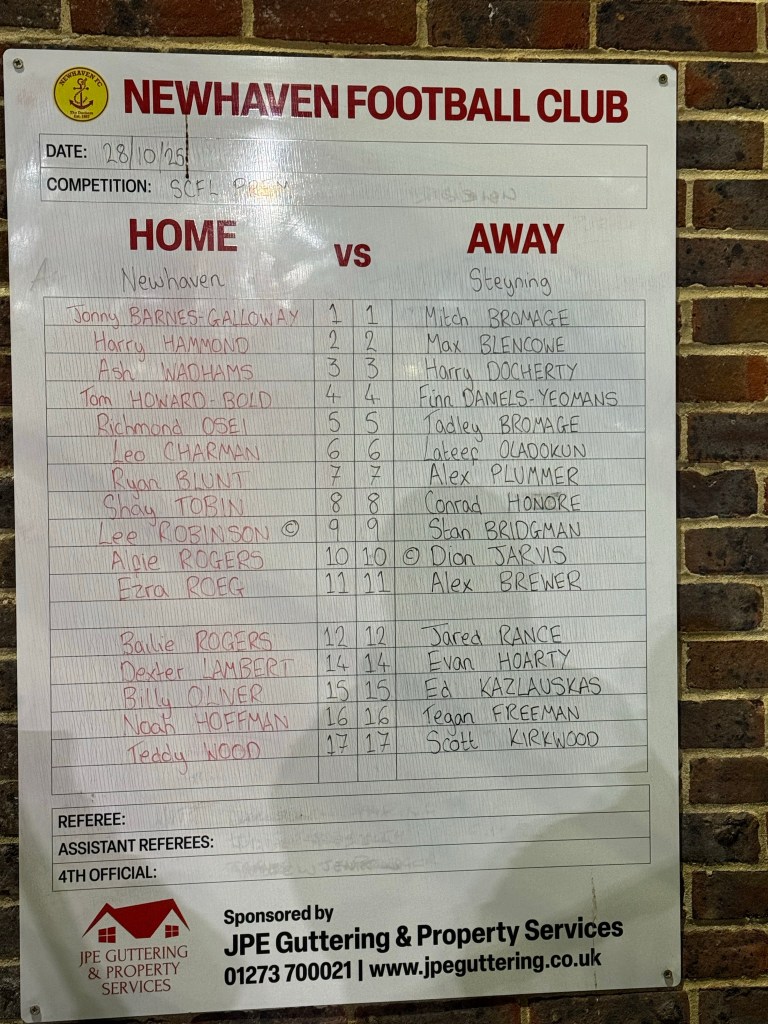 NEWHAVEN FC
NEWHAVEN FOOTBALL CLUB
DATE: 28/10/25
COMPETITION: SCFL PREM
HOME VS AWAY
Newhaven Steyning
Jonny BARNES-GALLOWAY 1 1 Mitch BROMAGE
Harry HAMMOND 2 2 Max BLENCOWE
Ash WADHAMS 3 3 Harry DOCHERTY
Tom HOWARD-BOLD 4 4 Finn DANIELS-YEOMANS
Richmond OSEI 5 5 Tadley BROMAGE
Leo CHARMAN 6 6 Lateef OLADOKUN
Ryan BLUNT 7 7 Alex PLUMMER
Shay TOBIN 8 8 Conrad HONORE
Lee ROBINSON © 9 9 Stan BRIDGMAN
Algie ROGERS 10 10 © Dion JARVIS
Ezra ROEG 11 11 Alex BREWER
Bailie ROGERS 12 12 Jared RANCE
Dexter LAMBERT 14 14 Evan HOARTY
Billy OLIVER 15 15 Ed KAZLAUSKAS
Noah HOFFMAN 16 16 Tegan FREEMAN
Teddy WOOD 17 17 Scott KIRKWOOD
REFEREE:
ASSISTANT REFEREES:
4TH OFFICIAL:
JPE GUTTERING
& PROPERTY
SERVICES
Sponsored by
JPE Guttering & Property Services
01273 700021 | www.jpeguttering.co.uk